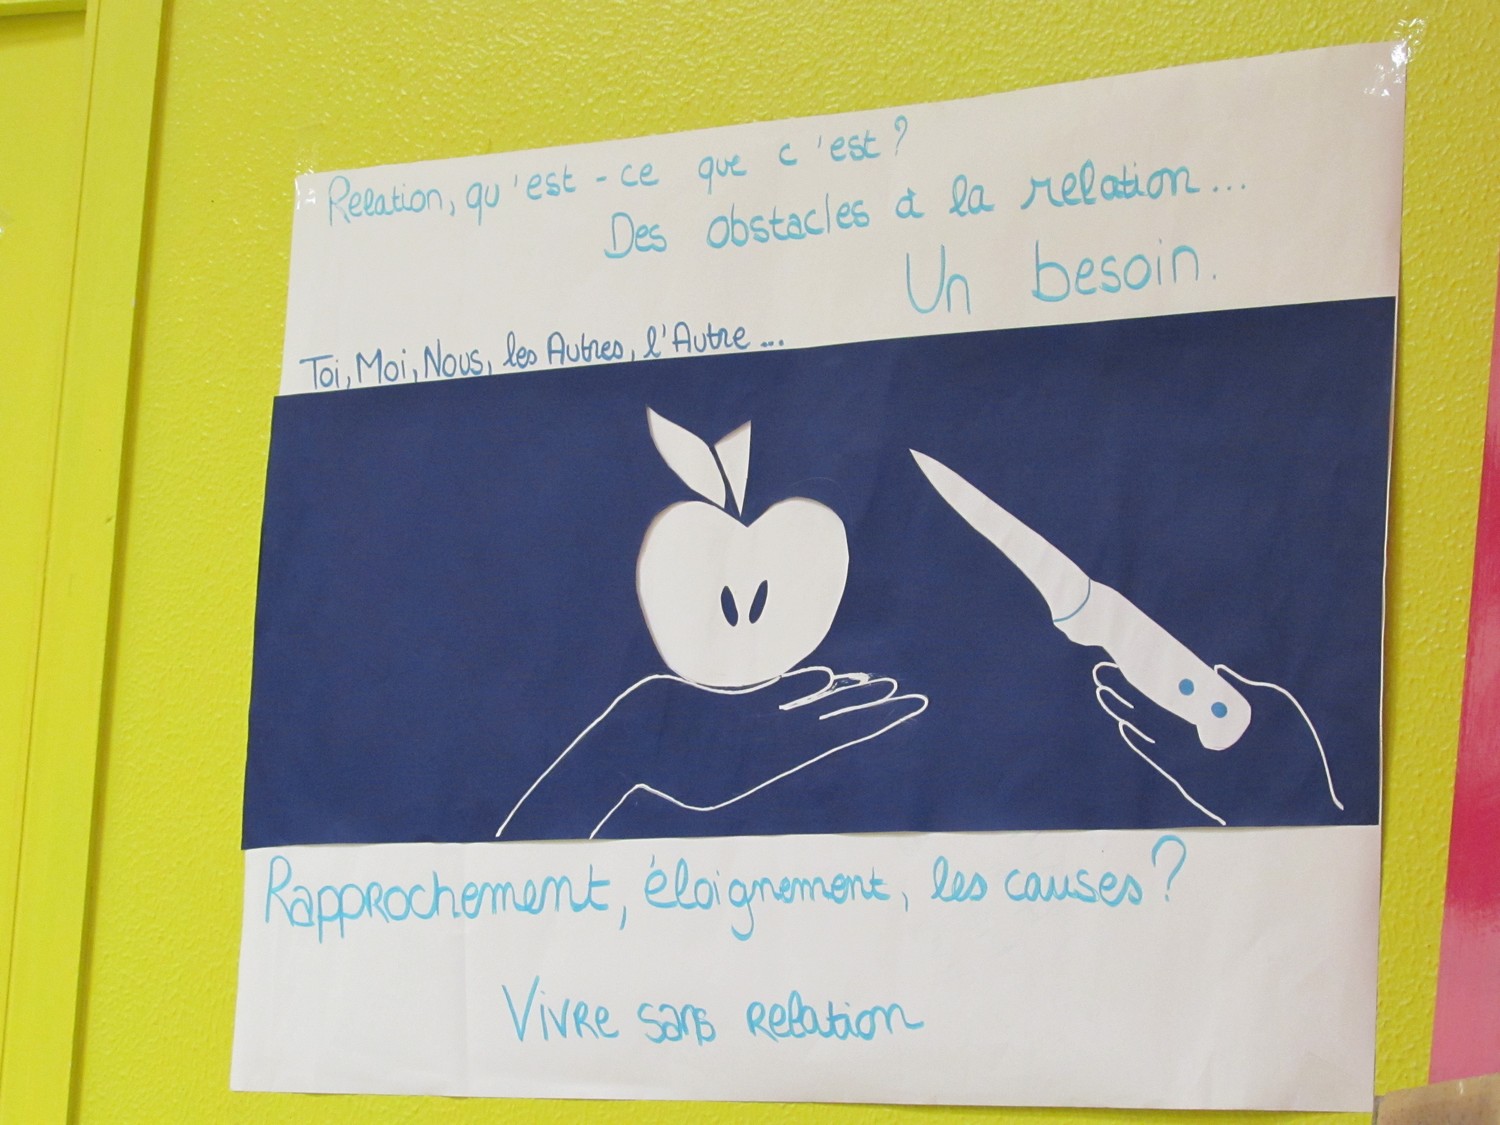 Relation, qu'est-ce que c'est?
Des obstacles à la relation...
Un besoin.
Toi, Moi, Nous, les Autres, l'Autre...
Rapprochement, éloignement, les causes?
Vivre sans relation